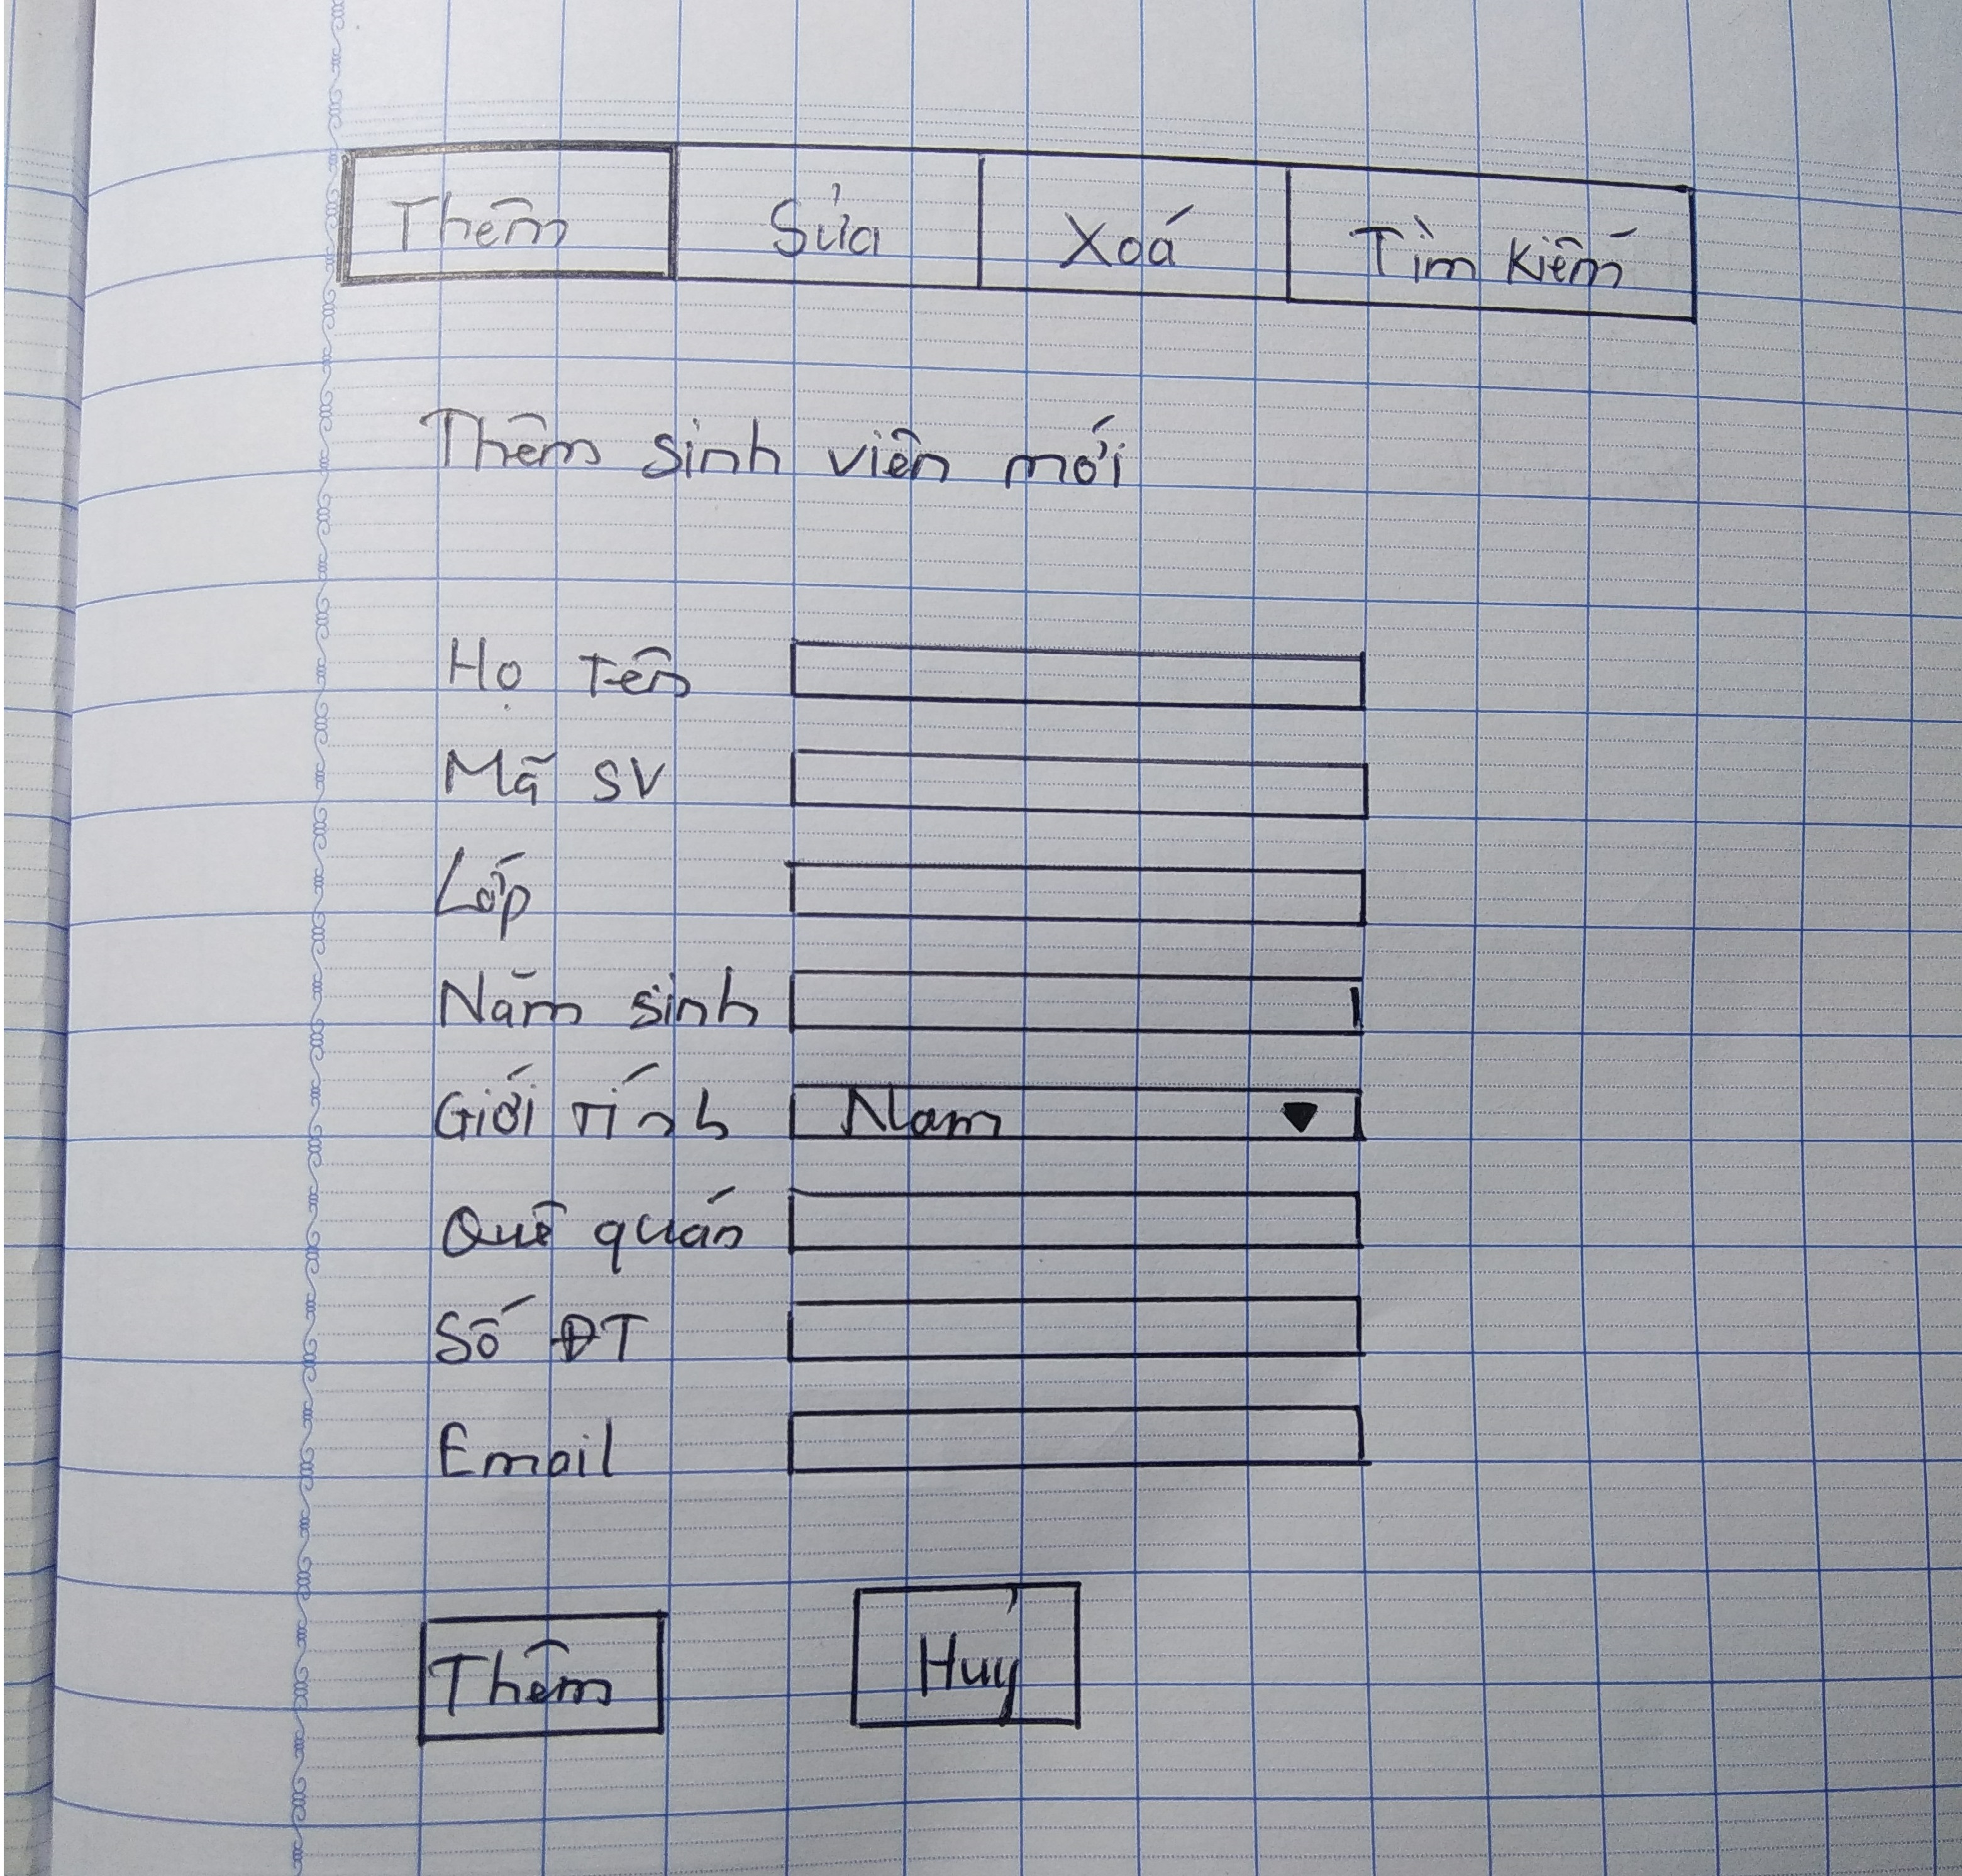 Thêm Sửa Xoá Tìm Kiếm
Thêm sinh viên mới
Họ Tên
Mã SV
Lớp
Năm sinh
Giới Tính Nam
Quê quán
Số ĐT
Email
Thêm Huỷ